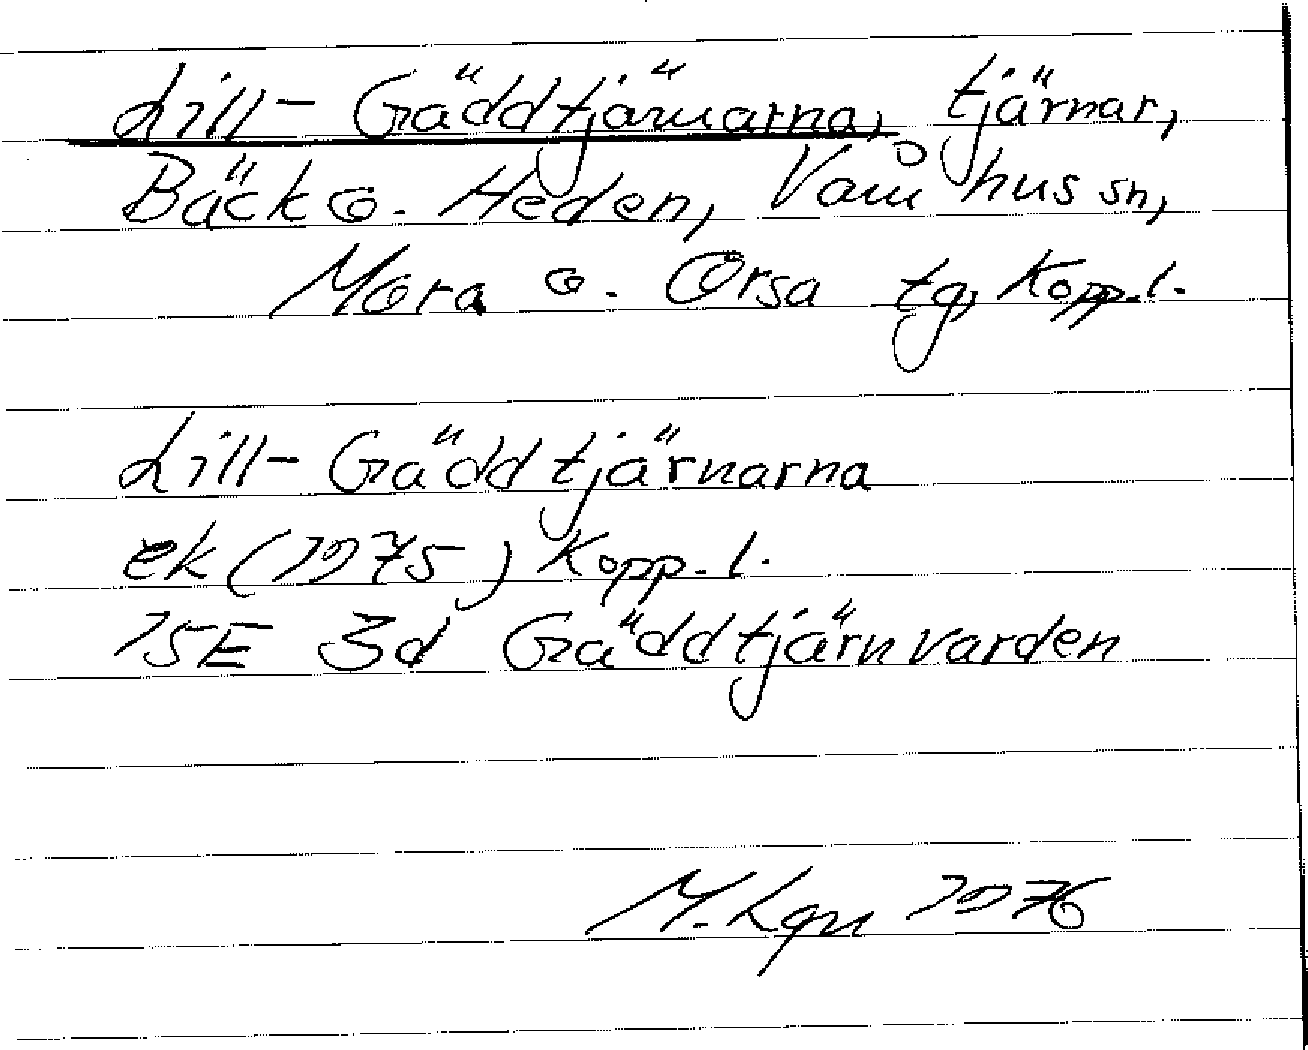 Lill-Gäddtjärnarna, tjärnar,
Bäck o. Heden, Våmhus sn,
Mora o. Orsa tg, Kopp.l.
Lill-Gäddtjärnarna
ek (1975) Kopp.l.
15E 3d Gäddtjärnvarden
M. Lgn 1976